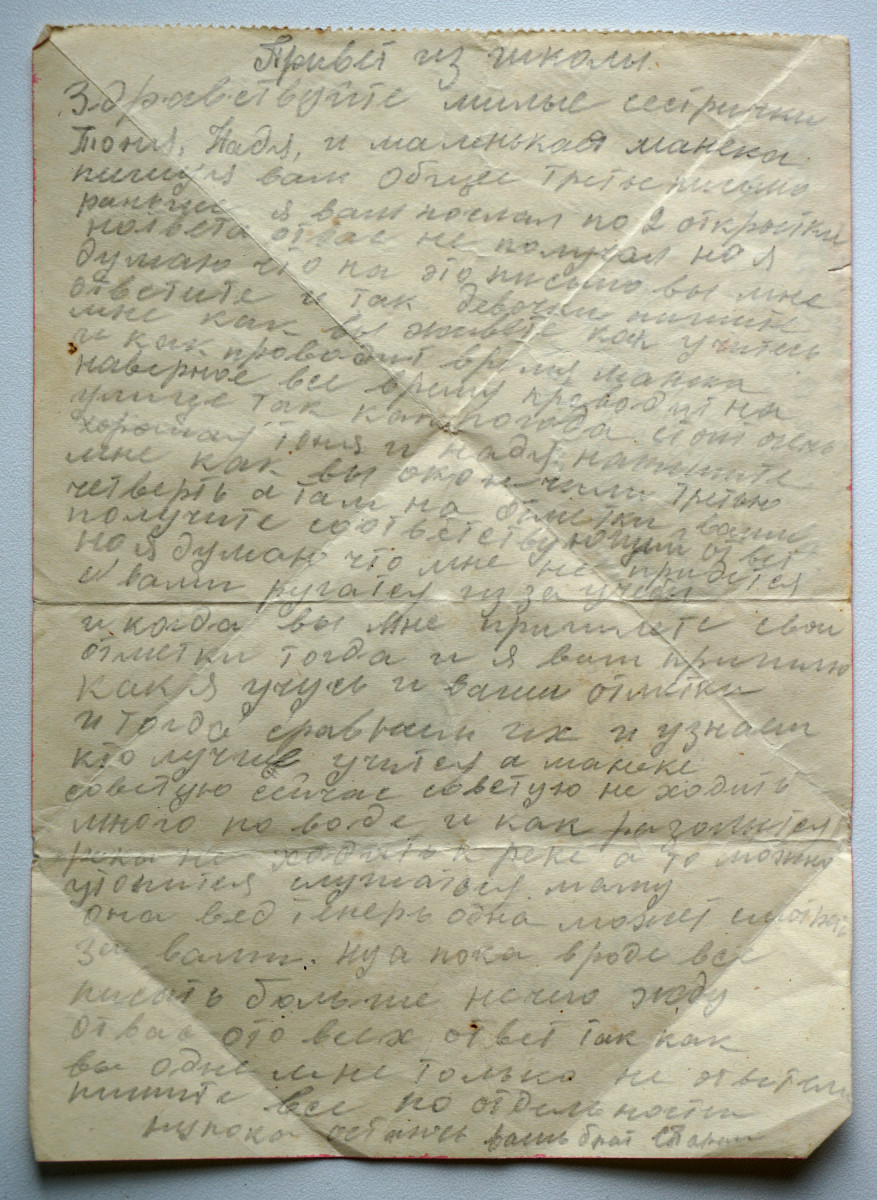 Привет из школы
Здравствуйте милые сестрички
Тоня, Надя, и маленькая манека
пишу я вам общее третье письмо
раньше я вам послал по 2 открытки
но ответа от вас не получал но я
думаю что на это письмо вы мне
ответите и так девочки пишите
мне как вы живете как учитесь
и как проводит время манека
наверное все время проводит на
улице так как погода стоит очень
хорошая тоня и надя напишите
мне как вы окончили третью
четверть а там на отметки ваши
получите соответствующий ответ
но я думаю что мне не придется
с вами ругатся из за учебы
и когда вы мне пришлете свои
отметки тогда и я вам пришлю
как я учусь и ваши отметки
и тогда сравним их и узнаем
кто лучше учится а манеке
советую сейчас советую не ходить
много по воде и как разольется
река не ходить к реке а то можно
утонится слушаться маму
она вед теперь одна может смотреть
за вами. ну а пока вроде все
писать больше нечего жду
от вас ото всех ответ так как
вы одне мне только не ответели
пишите все по отдельности
ну пока остаюсь ваш брат